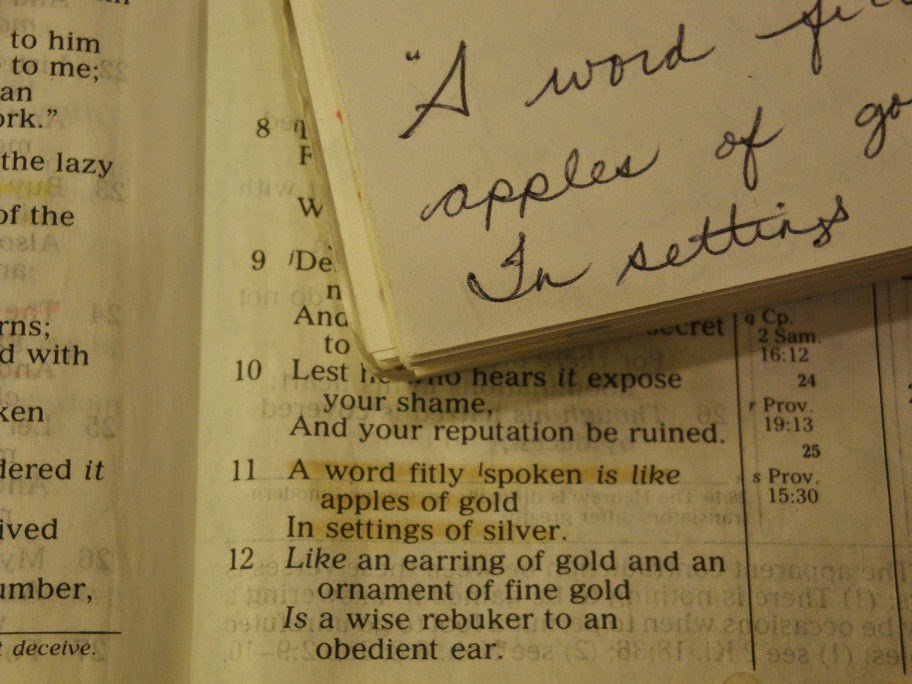 to him
to me;
an
ork."
the lazy
of the
rns;
d with
ken
dered it
ived
umber,
t deceive.
"A word
apples of go
In settings
8
F
W
9 De
n
And
to secret
10 Lest he who hears it expose
your shame,
And your reputation be ruined.
11 A word fitly lspoken is like
apples of gold
In settings of silver.
12 Like an earring of gold and an
ornament of fine gold
Is a wise rebuker to an
obedient ear.
q Cp.
2 Sam.
16:12
24
r Prov.
19:13
25
s Prov.
15:30